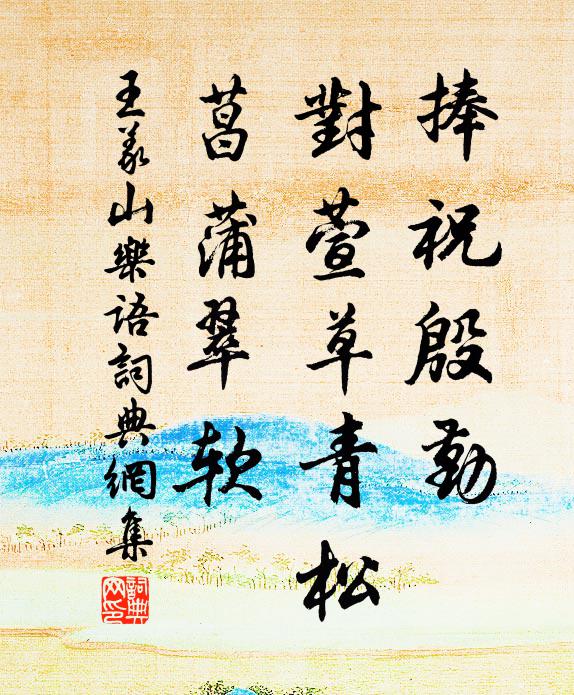 捧祝殷勤
對萱草青松
菖蒲翠軟
王義山樂語詞典網集